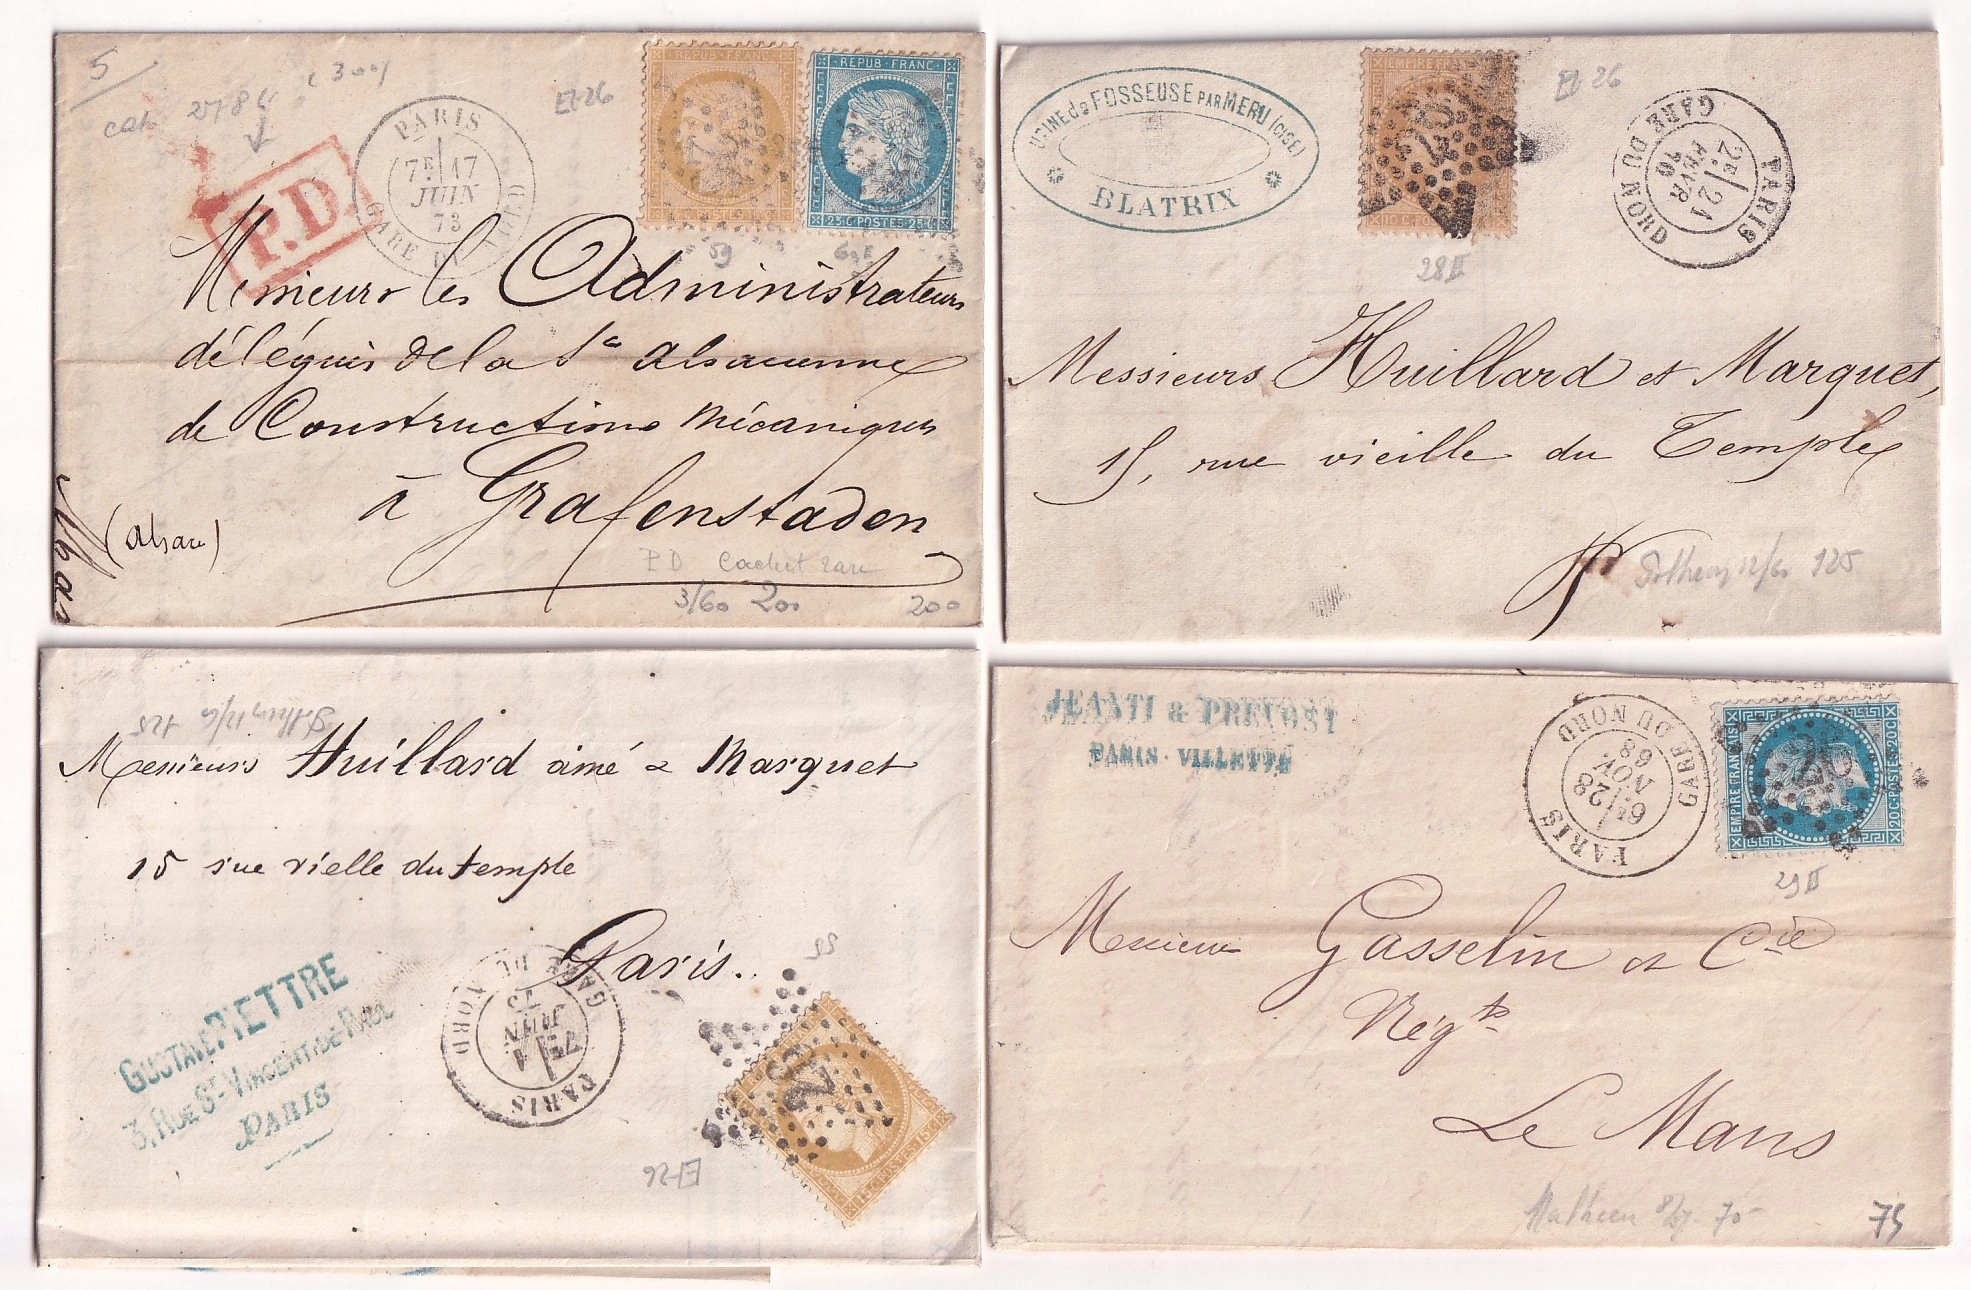 5
cote 2784 (300)
Et 26
REPUB·FRANC
REPUB·FRANC
25·C·POSTES·25·C
PARIS
7E 17
JUIN
73
GARE DU NORD
P.D
59
Messieurs les Administrateurs
délégués de la Sté alsacienne
de Constructions Mécaniques
à Grafenstaden
(Alsace)
PD Cachet rare
3/60 200 200
USINE de FOSSEUSE PAR MERU (OISE)
BLATRIX
EMPIRE FRANC
10 C·POSTES
26
Et 26
28II
PARIS
2E 21
FEVR
70
GARE DU NORD
Messieurs Huillard et Marquet,
15, rue vieille du Temple
12/60 125
12/60 125
Messieurs Huillard ainé & Marquet
15 rue vielle du temple
Paris.
GUSTAVE PIETTRE
3, RUE ST VINCENT DE PAUL
PARIS
PARIS
7E 1
JUIN
75
GARE DU NORD
55
26
15·C·POSTES·15·C
Et 26
JEANTI & PREVOST
PARIS·VILLETTE
PARIS
6E 28
NOV
68
GARE DU NORD
EMPIRE FRANCAIS
20·C·POSTES·20·C
26
29II
Messieurs Gasselin et Cie
Négts
Le Mans
70
75